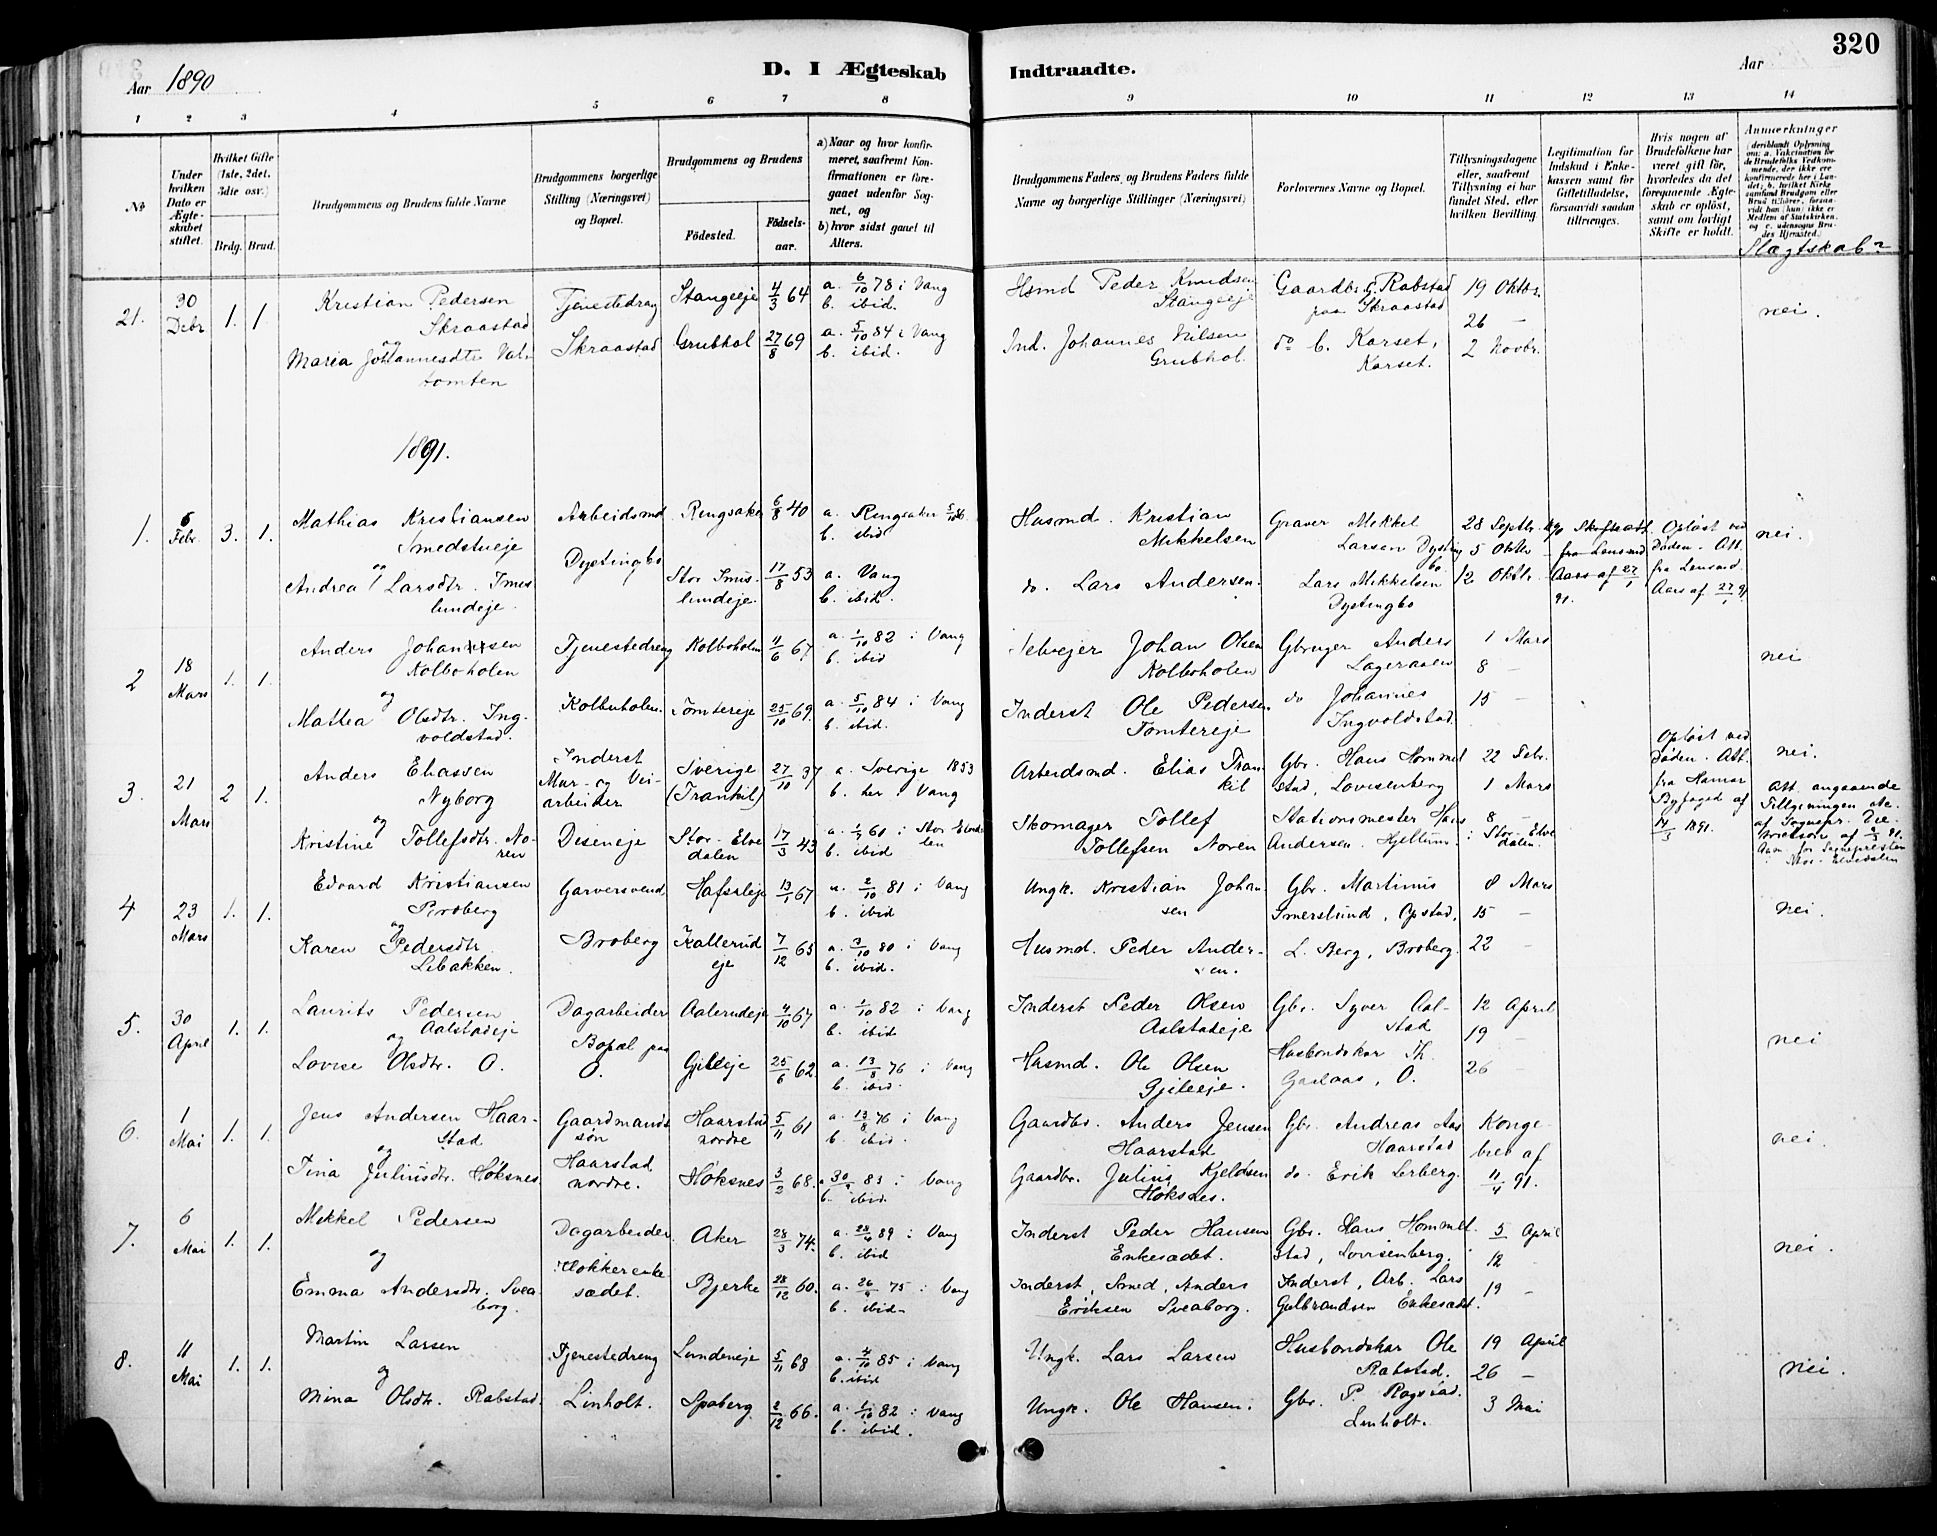 320
Aar 1890
D. I Ægteskab
Indtraadte.
Aar
1 2 3 4 5 6 7 8 9 10 11 12 13 14
№
Under hvilken Dato er Ægteskabet stiftet.
Hvilket Gifte (1ste, 2det, 3die osv.)
Brdg. Brud.
Brudgommens og Brudens fulde Navne
Brudgommens borgerlige Stilling (Næringsvei) og Bopæl.
Brudgommens og Brudens
Födested.
Födselsaar.
a) Naar og hvor konfirmeret, saafremt Konfirmationen er foregaaet udenfor Sognet, og
b) hvor sidst gaaet til Alters.
Brudgommens Faders, og Brudens Faders fulde Navne og borgerlige Stillinger (Næringsvei)
Forlovernes Navne og Bopæl.
Tillysningsdagene eller, saafremt Tillysning ei har fundet Sted, efter hvilken Bevilling.
Legitimation for Indskud i Enkekassen samt for Giftetilladelse, forsaavidt saadan tiltrænges.
Hvis nogen af Brudefolkene har været gift för, hvorledes da det foregaaende Ægteskab er oplöst, samt om lovligt Skifte er holdt.
Anmærkninger
Slægtskab?
21. 30 Debr 1. 1.
Kristian Pedersen Skraastad
og
Maria Johannesdtr
tomten
Tjenestedreng
Skraastad
Stangeeje 4/3 64 a. 6/10 78 i Vang
b. ibid.
Grubhol 27/8 69 a. 5/10 84 i Vang
b. ibid.
Hsmd Peder Knudsen Stangeeje
Ind. Johannes Nilsen Grubhol.
Gaardbr. Rabstad paa Skraastad
do C. Karset, Karset.
19 Oktbr.
26 –
2 Novbr.
nei.
1891.
1. 6 Febr. 3. 1.
Mathias Kristiansen Smedstueje
og
Andrea Larsdtr.
lundeje.
Arbeidsmd
Dystingbo
Ringsaker 6/8 40 a. Ringsaker
b. ibid
Stor
lundeje. 17/8 53 a. Vang
b. ibid.
Husmd. Kristian Mikkelsen
do. Lars Andersen.
Graver Mikkel Larsen Dystingbo.
Lars Mikkelsen Dystingbo
28 Septbr. 90
5 Oktbr –
12 Oktbr. –
Skifteatt. fra Lensmd Aars af 27/1 91.
Opløst ved Døden. Att. fra Lensmd. Aars af 27/1 91.
nei.
2 18 Mars 1. 1.
Anders Johansen Kolboholen
og
Mattea Olsdtr. Ingvoldstad.
Tjenestedreng
Kolboholen.
Kolboholen 11/6 67 a. 1/10 82 i Vang
b. ibid
Tomtereje 25/10 69. a. 5/10 84 i Vang
b. ibid.
Selvejer Johan Olsen Kolboholen
Inderst Ole Pedersen Tomtereje
Gbruger Anders Lageraaen
do Johannes Ingvoldstad.
1 Mars
8 –
15 –
nei
3. 21 Mars 2 1.
Anders Eliassen Nyborg
og
Kristine Tollefsdtr. Noren
Inderst
Mur- og Veiarbeider
Diseneje
Sverige (Trankil) 27/10 37 a. Sverige 1853
b. her i Vang
Stor-Elvedalen 17/3 43 a. 60 i Stor Elvdalen
b. ibid
Arbeidsmd. Elias Trankil
Skomager Tollef Tollefsen Noren
Gbr. Hans Hommelstad, Lovisenberg
Stationsmester Hans Andersen. Hjellum.
22 Febr.
1 Mars
8 –
i Stor-Elvedalen.
Opløst ved Døden. Att. fra Hamar Byfoged af 1891.
nei.
Att. angaaende Tillysningen
4 23 Mars 1. 1.
Edvard Kristiansen Broberg
og
Karen Pedersdtr. Libakken.
Garversvend
Broberg
Hafsaleje 13/1 67 a. 2/10 81 i Vang
b. ibid
Kallerudeje 7/12 65 a. 3/10 80 i Vang
b. ibid.
Ungk. Kristian Johansen
Husmd. Peder Andersen.
Gbr. Martinus Imerslund, Opstad,
L. Berg, Broberg.
8 Mars
15 –
22 –
nei.
5. 30 April 1. 1.
Laurits Pedersen Aalstadeje
og
Lovise Olsdtr. O.
Dagarbeider
Bopæl paa O.
Aalerudeje 4/10 67 a. 1/10 82 i Vang
b. ibid.
Gjileeje 25/6 62. a. 13/8 76 i Vang
b. ibid.
Inderst Peder Olsen Aalstadeje
Husmd. Ole Olsen Gjileeje.
Gbr. Syver Aalstad
Husbondskar Th. Gaalaas, O.
12 April
19 –
26 –
nei
6. 1 Mai 1. 1.
Jens Andersen Haarstad
og
Tina Juliusdtr. Høksnes
Gaardmandssøn
Haarstad nordre.
Haarstad nordre 5/11 61 a. 13/8 76 i Vang
b. ibid.
Høksnes 3/2 68. a. 30/9 83 i Vang
b. ibid.
Gaardbr. Anders Jensen Haarstad
Gaardbr. Julius Kjeldsen Høksnes.
Gbr. Andreas Aas Haarstad
do. Erik Lerberg.
Kongebrev af 11/4 91.
nei.
7. 6 Mai 1. 1.
Mikkel Pedersen
og
Emma Andersdtr. Sveaborg.
Dagarbeider.
Flokkerenkesædet.
Aker 28/3 74. a. 28/4 89 i Vang
b. ibid
Bjerke 28/12 60. a. 26/9 75 i Vang
b. ibid.
Inderst Peder Hansen Enkesædet.
Inderst, Smed, Anders Eriksen Sveaborg.
Gbr. Hans Hommelstad, Lovisenberg.
Inderst, Arb. Lars Gulbrandsen Enkesædet.
5 April
12 –
19 –
nei.
8. 11 Mai 1. 1.
Martin Larsen
og
Mina Olsdtr. Rabstad.
Tjenestedreng
Linholt.
Lundeneje 5/11 68 a. 4/10 85 i Vang
b. ibid
Spaberg 2/12 66. a. 1/10 82 i Vang
b. ibid.
Ungk. Lars Larsen
Ungk. Ole Hansen.
Husbondskar Ole Rabstad.
Gbr. P. Rogstad. Linholt.
19 April
26 –
3 Mai
nei.